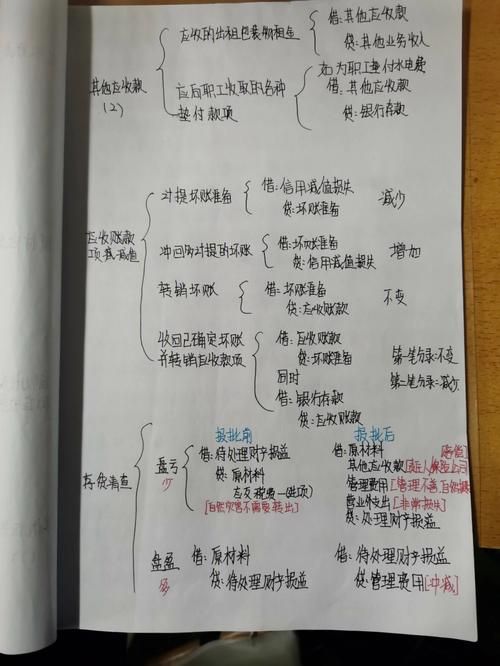 其他应收款
(2)
应收的出租包装物租金
借:其他应收款
贷:其他业务收入
应向职工收取的各种
垫付款项
如为职工垫付水电费
借:其他应收款
贷:银行存款
应收账款
项减值
计提坏账准备
借:信用减值损失
贷:坏账准备
减少
冲回多计提的坏账
借:坏账准备
贷:信用减值损失
增加
转销坏账
借:坏账准备
贷:应收账款
不变
收回已确定坏账
并转销应收款项
借:应收账款
贷:坏账准备
同时
借:银行存款
贷:应收账款
第一笔分录:不变
第二笔分录:减少
存货清查
盘亏
少
报批前
借:待处理财产损益
贷:原材料
应交税费—进项)
[自然灾害不需要转出]
报批后
借:原材料
其他应收款[责任人保险公司]
管理费用[管理不善,自然损
营业外支出[非常损失]
贷:处理财产损益
盘盈
多
借:原材料
贷:待处理财产损益
借:待处理财产损益
贷:管理费用[冲减]